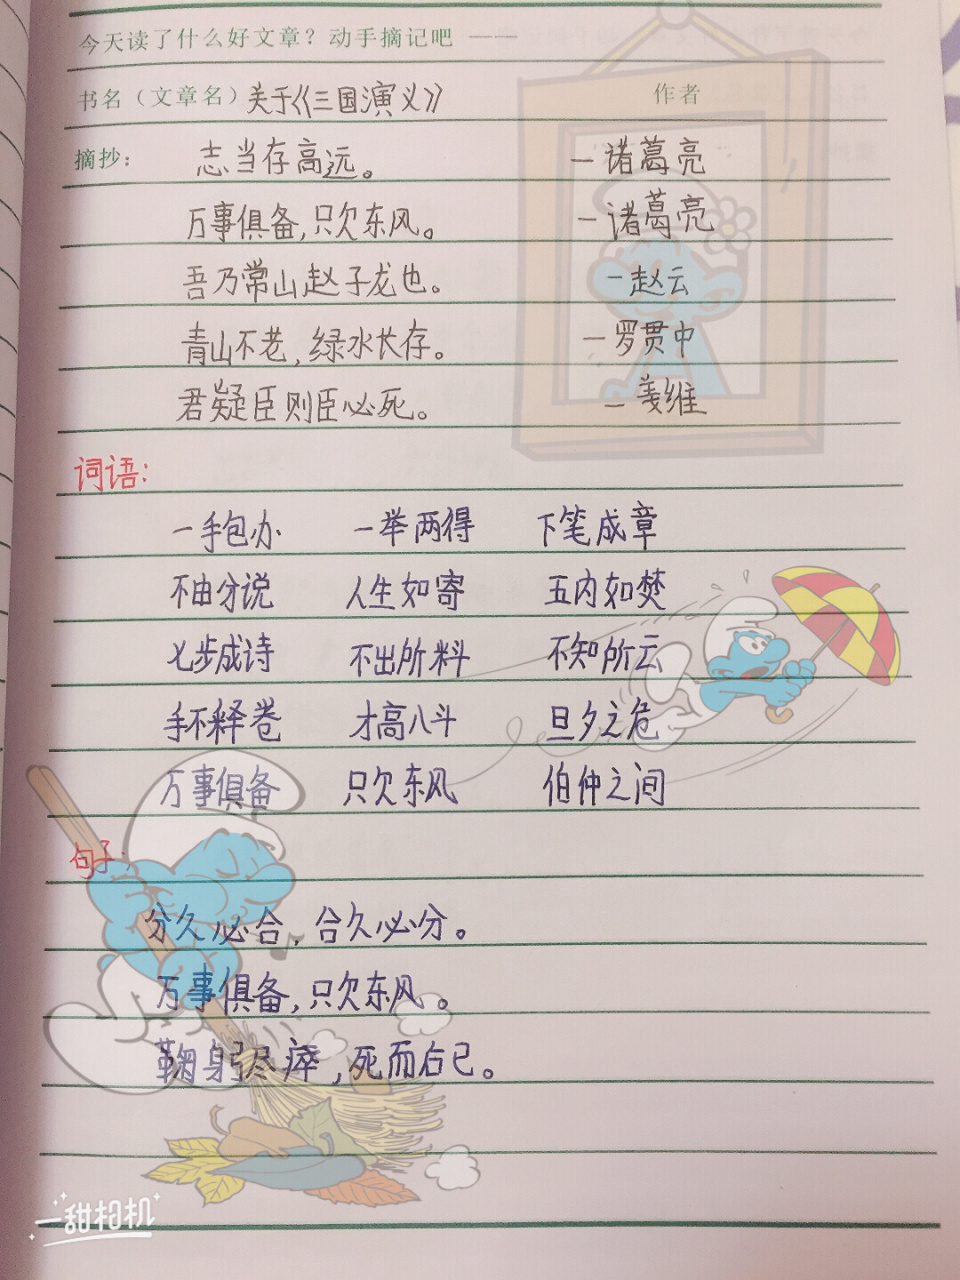 今天读了什么好文章？动手摘记吧 ——
书名（文章名）关于《三国演义》 作者
摘抄： 志当存高远。 —诸葛亮
万事俱备,只欠东风。 —诸葛亮
吾乃常山赵子龙也。 —赵云
青山不老,绿水长存。 —罗贯中
君疑臣则臣必死。 —姜维
词语:
一手包办 一举两得 下笔成章
不由分说 人生如寄 五内如焚
七步成诗 不出所料 不知所云
手不释卷 才高八斗 旦夕之危
万事俱备 只欠东风 伯仲之间
句子:
分久必合,合久必分。
万事俱备,只欠东风。
鞠躬尽瘁,死而后已。
一甜相机